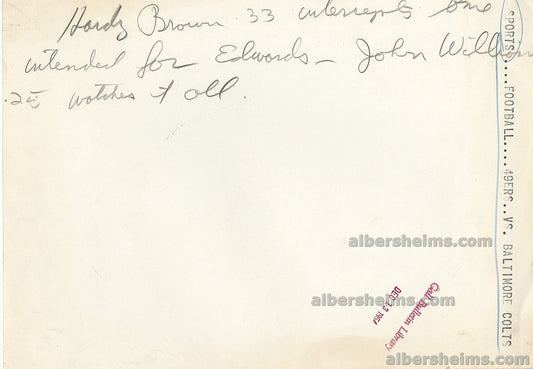 Hardy Brown 33 intercepts one
intended for Edwards - John William
25 watches it all.
SPORTS....FOOTBALL....49ERS..VS. BALTIMORE COLTS
albersheims.com
Call Bulletin Library
DEC 13 1954
albersheims.com
albersheims.com